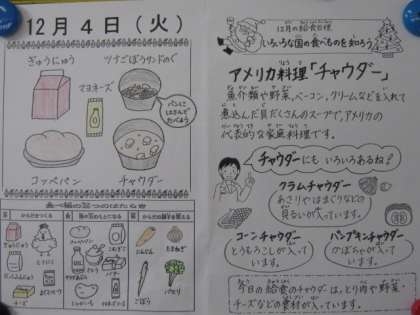 12月4日(火)
ぎゅうにゅう
ツナごぼうサンドのぐ
マヨネーズ
パンに
はさんで
たべよう
コッペパン
チャウダー
食べ物の3つのはたらき
ぎゅうにゅう
とりにく
コッペパン
バター
じゃがいも
にんじん
たまねぎ
ごぼう
パセリ
12月の給食目標
いろいろな国の食べものを知ろう
アメリカ料理「チャウダー」
魚介類や野菜、ベーコン、クリームなどを入れて
煮込んだ具だくさんのスープで、アメリカの
代表的な家庭料理です。
チャウダーにもいろいろあるね!
クラムチャウダー
あさりやはまぐりなどの
貝るいが入っています。
コーンチャウダー
とうもろこしが入って
います。
パンプキンチャウダー
かぼちゃが入って
います。
今日の給食のチャウダーは、とり肉や野菜・
チーズなどの食材が入っています。